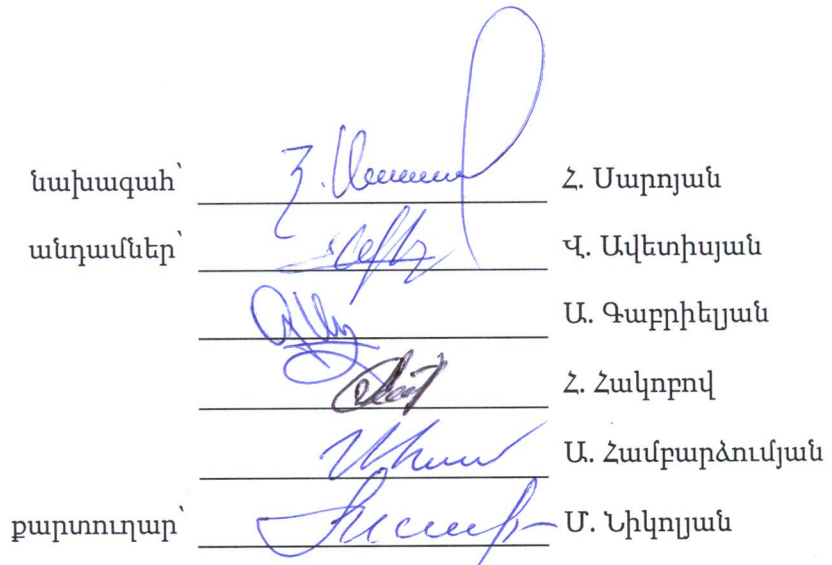 նախագահ՝ Հ. Սարոյան
անդամներ՝ Վ. Ավետիսյան
Ա. Գաբրիելյան
Հ. Հակոբով
Ա. Համբարձումյան
քարտուղար՝ Մ. Նիկոլյան